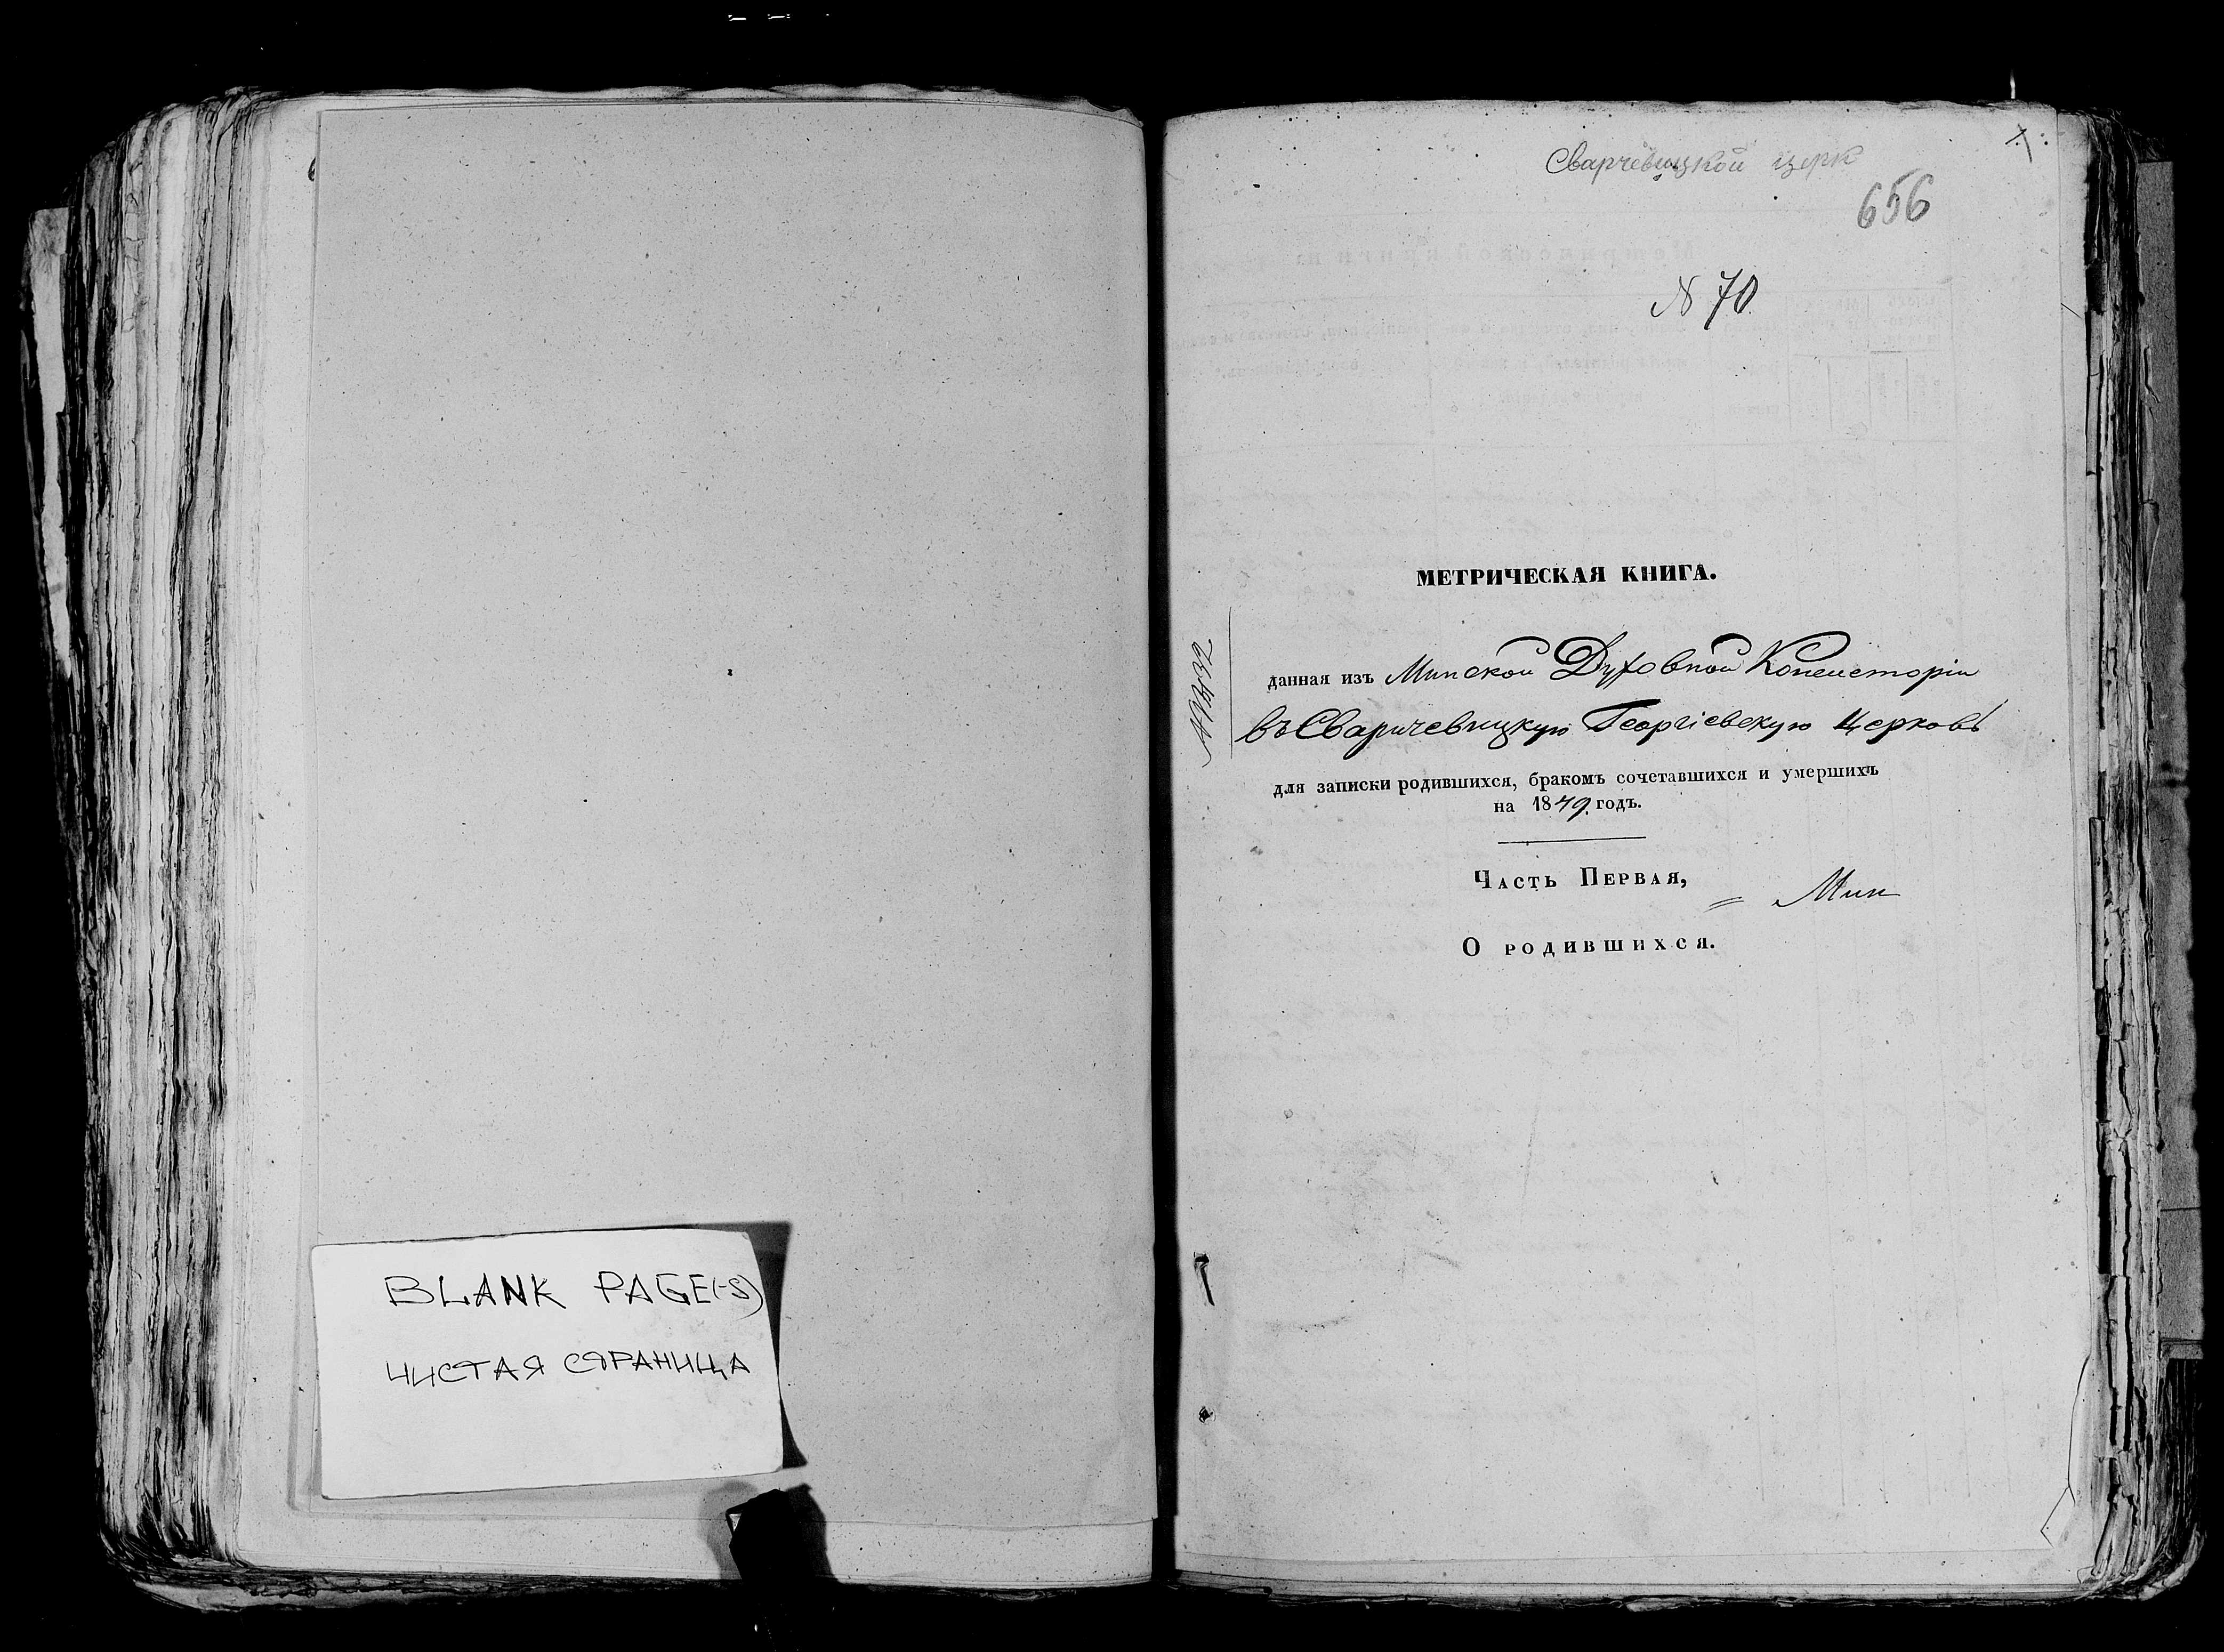 BLANK PAGE(-S)
ЧИСТАЯ СТРАНИЦА
Сварчевицкой церк
656
N 70.
МЕТРИЧЕСКАЯ КНИГА.
данная изъ Минской Духовной Консисторіи
въ Сваричевицкую Георгіевскую Церковь
для записки родившихся, бракомъ сочетавшихся и умершихъ
на 1849. годъ.
Часть Первая,
Мин
О родившихся.